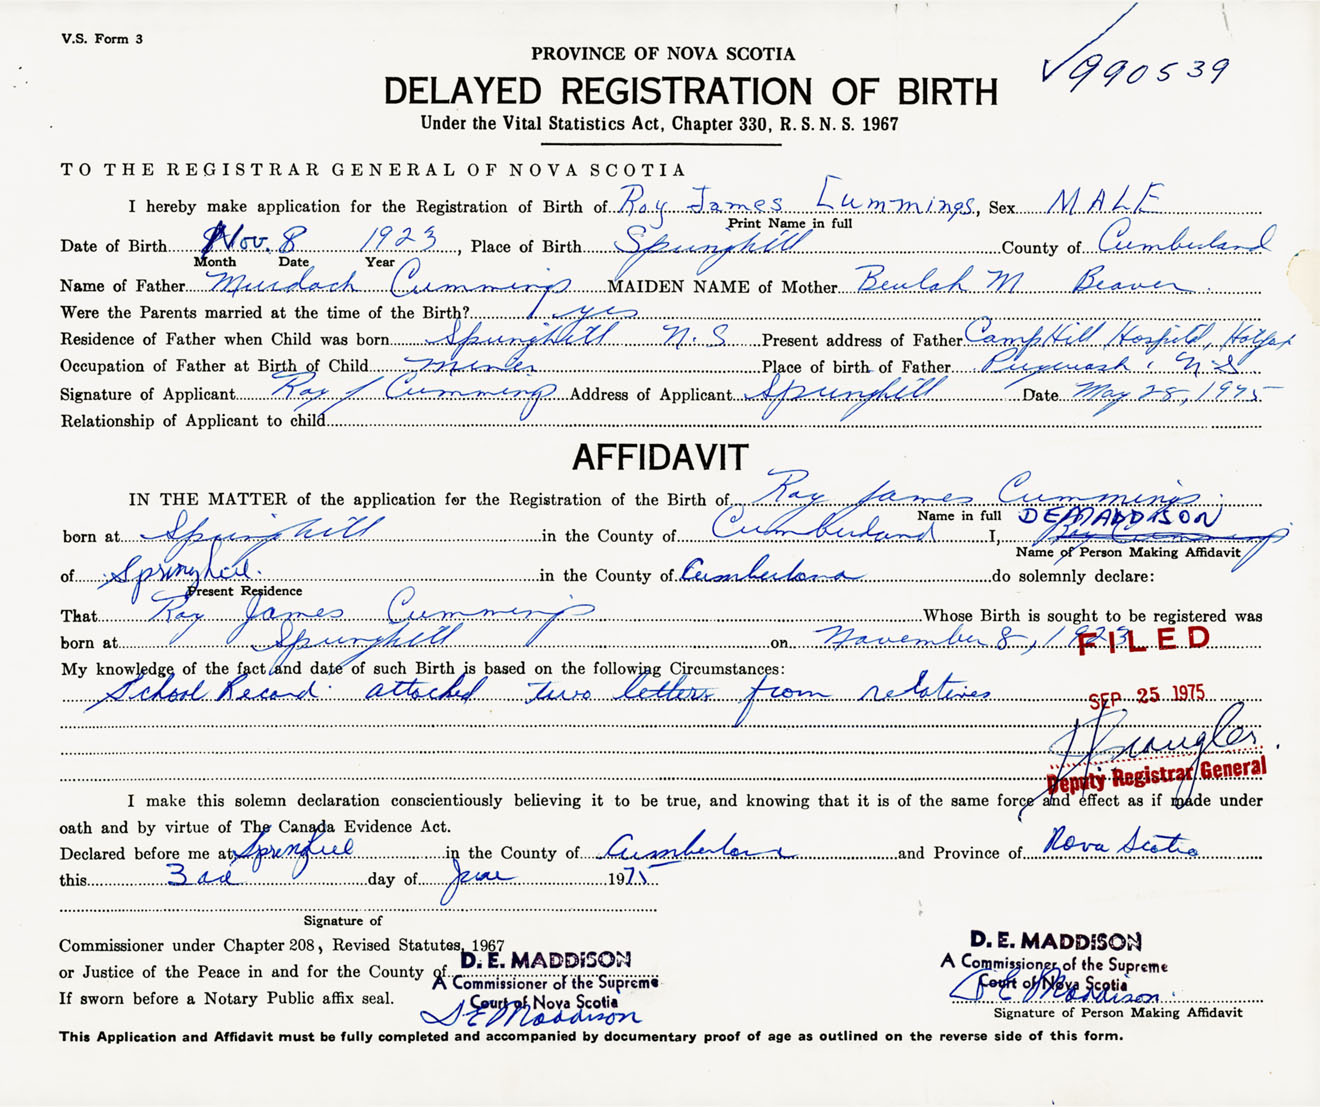 V.S. Form 3
PROVINCE OF NOVA SCOTIA
990539
DELAYED REGISTRATION OF BIRTH
Under the Vital Statistics Act, Chapter 330, R. S. N. S. 1967
TO THE REGISTRAR GENERAL OF NOVA SCOTIA
I hereby make application for the Registration of Birth of Roy James Cummings, Sex MALE
Print Name in full
Date of Birth Nov. 8 1923, Place of Birth Springhill County of Cumberland
Month Date Year
Name of Father Murdoch Cummings MAIDEN NAME of Mother Beulah M Beaver
Were the Parents married at the time of the Birth? yes
Residence of Father when Child was born Springhill N.S. Present address of Father Camp Hill Hospital, Halifax
Occupation of Father at Birth of Child Miner Place of birth of Father Pugwash, N.S.
Signature of Applicant Roy J Cummings Address of Applicant Springhill Date May 28, 1975
Relationship of Applicant to child
AFFIDAVIT
IN THE MATTER of the application for the Registration of the Birth of Roy James Cummings
Name in full DEMADDISON
born at Springhill in the County of Cumberland I, Roy Cummings
Name of Person Making Affidavit
of Springhill. in the County of Cumberland do solemnly declare:
Present Residence
That Roy James Cummings Whose Birth is sought to be registered was
born at Springhill on November 8, 1923
FILED
My knowledge of the fact and date of such Birth is based on the following Circumstances:
School Record. attached two letters from relatives
SEP 25 1975
Deputy Registrar General
I make this solemn declaration conscientiously believing it to be true, and knowing that it is of the same force and effect as if made under
oath and by virtue of The Canada Evidence Act.
Declared before me at Springhill in the County of Cumberland and Province of Nova Scotia
this 3rd day of June 1975
Signature of
Commissioner under Chapter 208, Revised Statutes, 1967
or Justice of the Peace in and for the County of
If sworn before a Notary Public affix seal.
D. E. MADDISON
A Commissioner of the Supreme
Court of Nova Scotia
D E Maddison
D. E. MADDISON
A Commissioner of the Supreme
Court of Nova Scotia
D E Maddison
Signature of Person Making Affidavit
This Application and Affidavit must be fully completed and accompanied by documentary proof of age as outlined on the reverse side of this form.